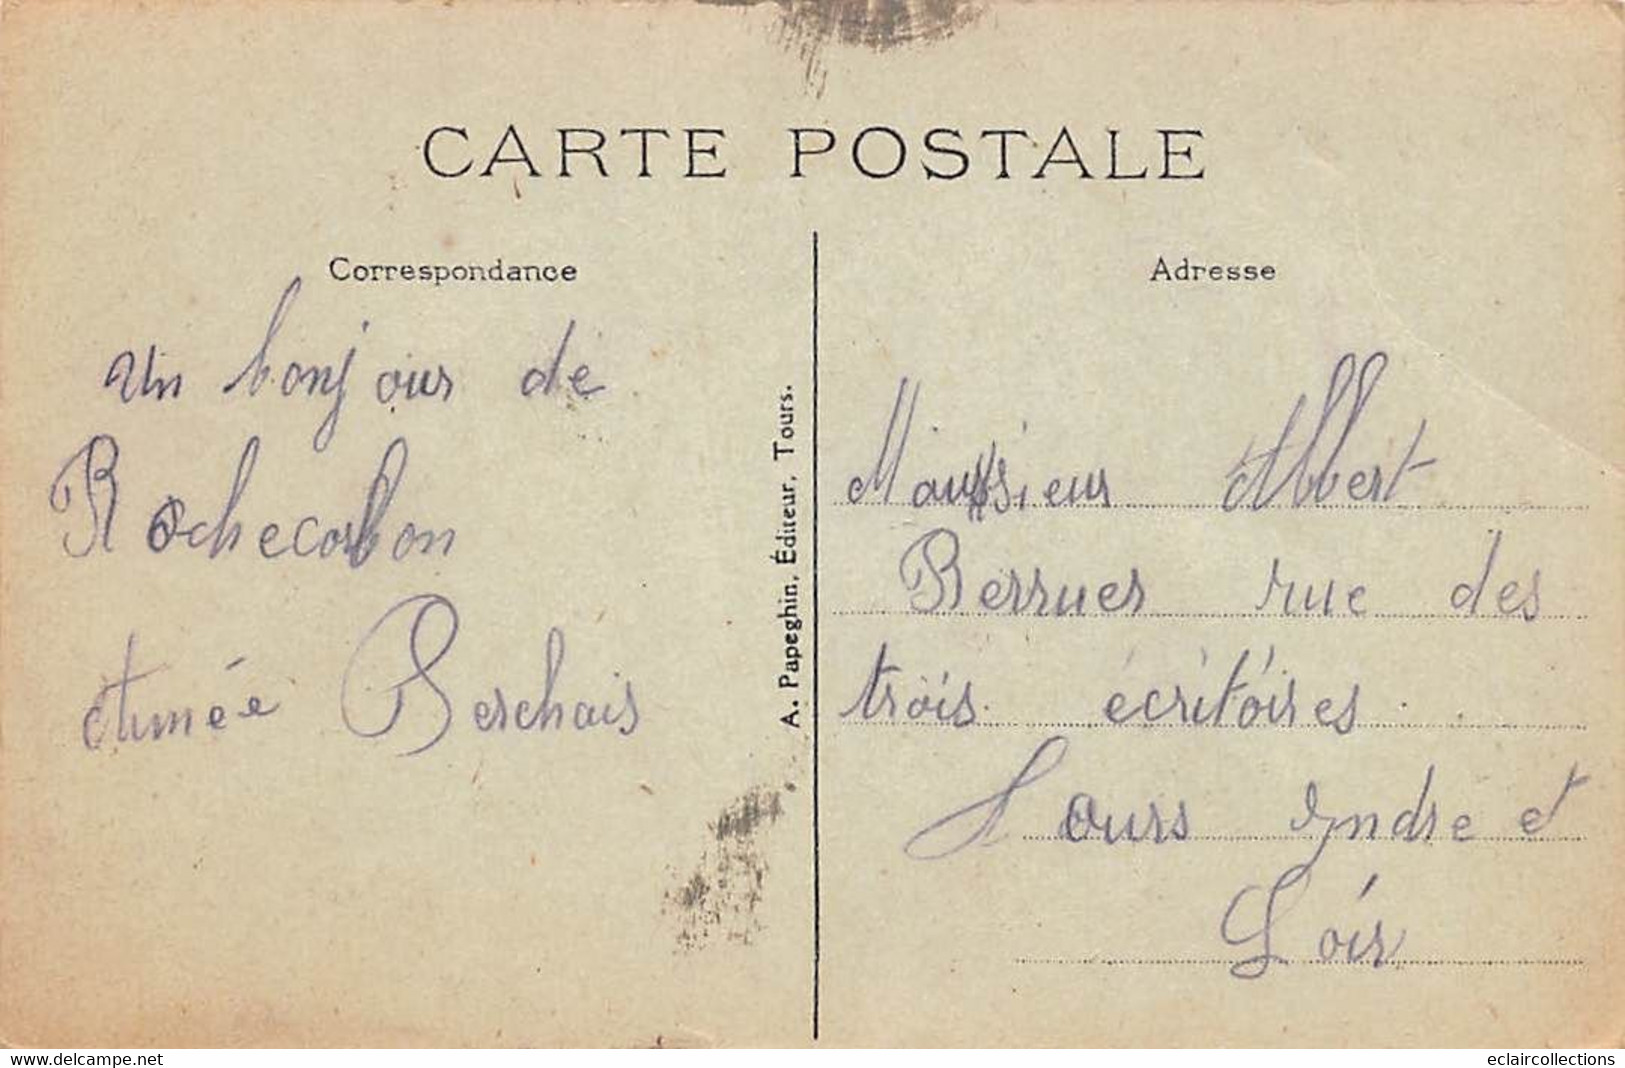 CARTE POSTALE
Correspondance
Un bonjour de
Rochecorbon
Aimée Berchais
A. Papeghin, Éditeur, Tours.
Adresse
Monsieur Albert
Berruer rue des
trois écritoires
Tours Indre et
Loir
www.delcampe.net
eclaircollections